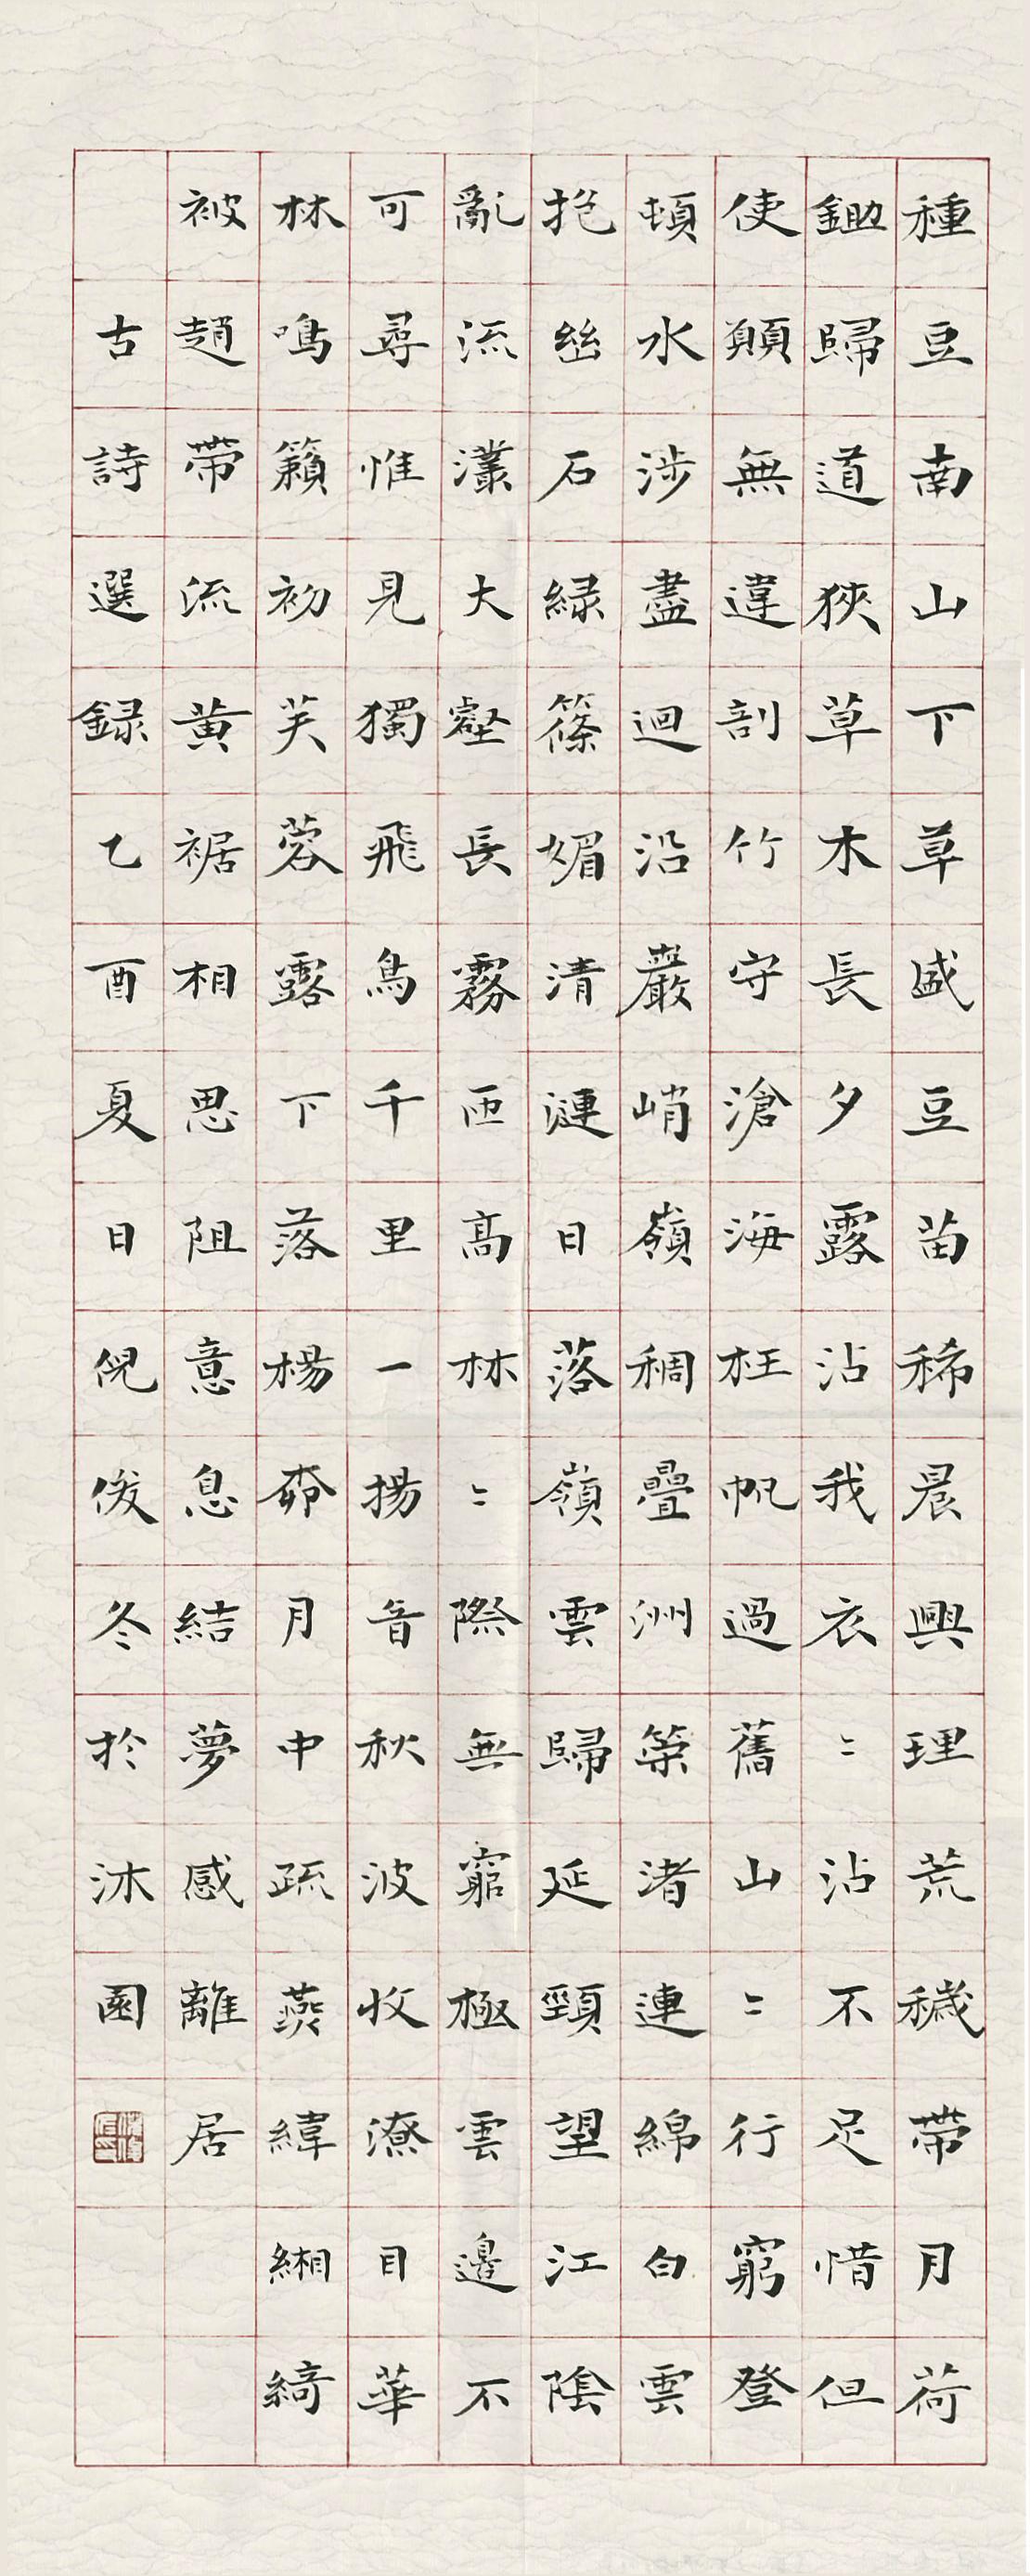 種豆南山下草盛豆苗稀晨興理荒穢帶月荷
鋤歸道狹草木長夕露沾我衣〻沾不足惜但
使願無違剖竹守滄海枉帆過舊山〻行窮登
頓水涉盡迴沿巖峭嶺稠疊洲縈渚連綿白雲
抱幽石綠篠媚清漣日落嶺雲歸延頸望江陰
亂流灇大壑長霧匝高林〻際無窮極雲邊不
可尋惟見獨飛鳥千里一揚音秋波收潦目華
林鳴籟初芙蓉露下落楊柳月中疏燕緯緗綺
被趙帶流黃裾相思阻意息結夢感離居
古詩選錄乙酉夏日倪俊冬於沐園